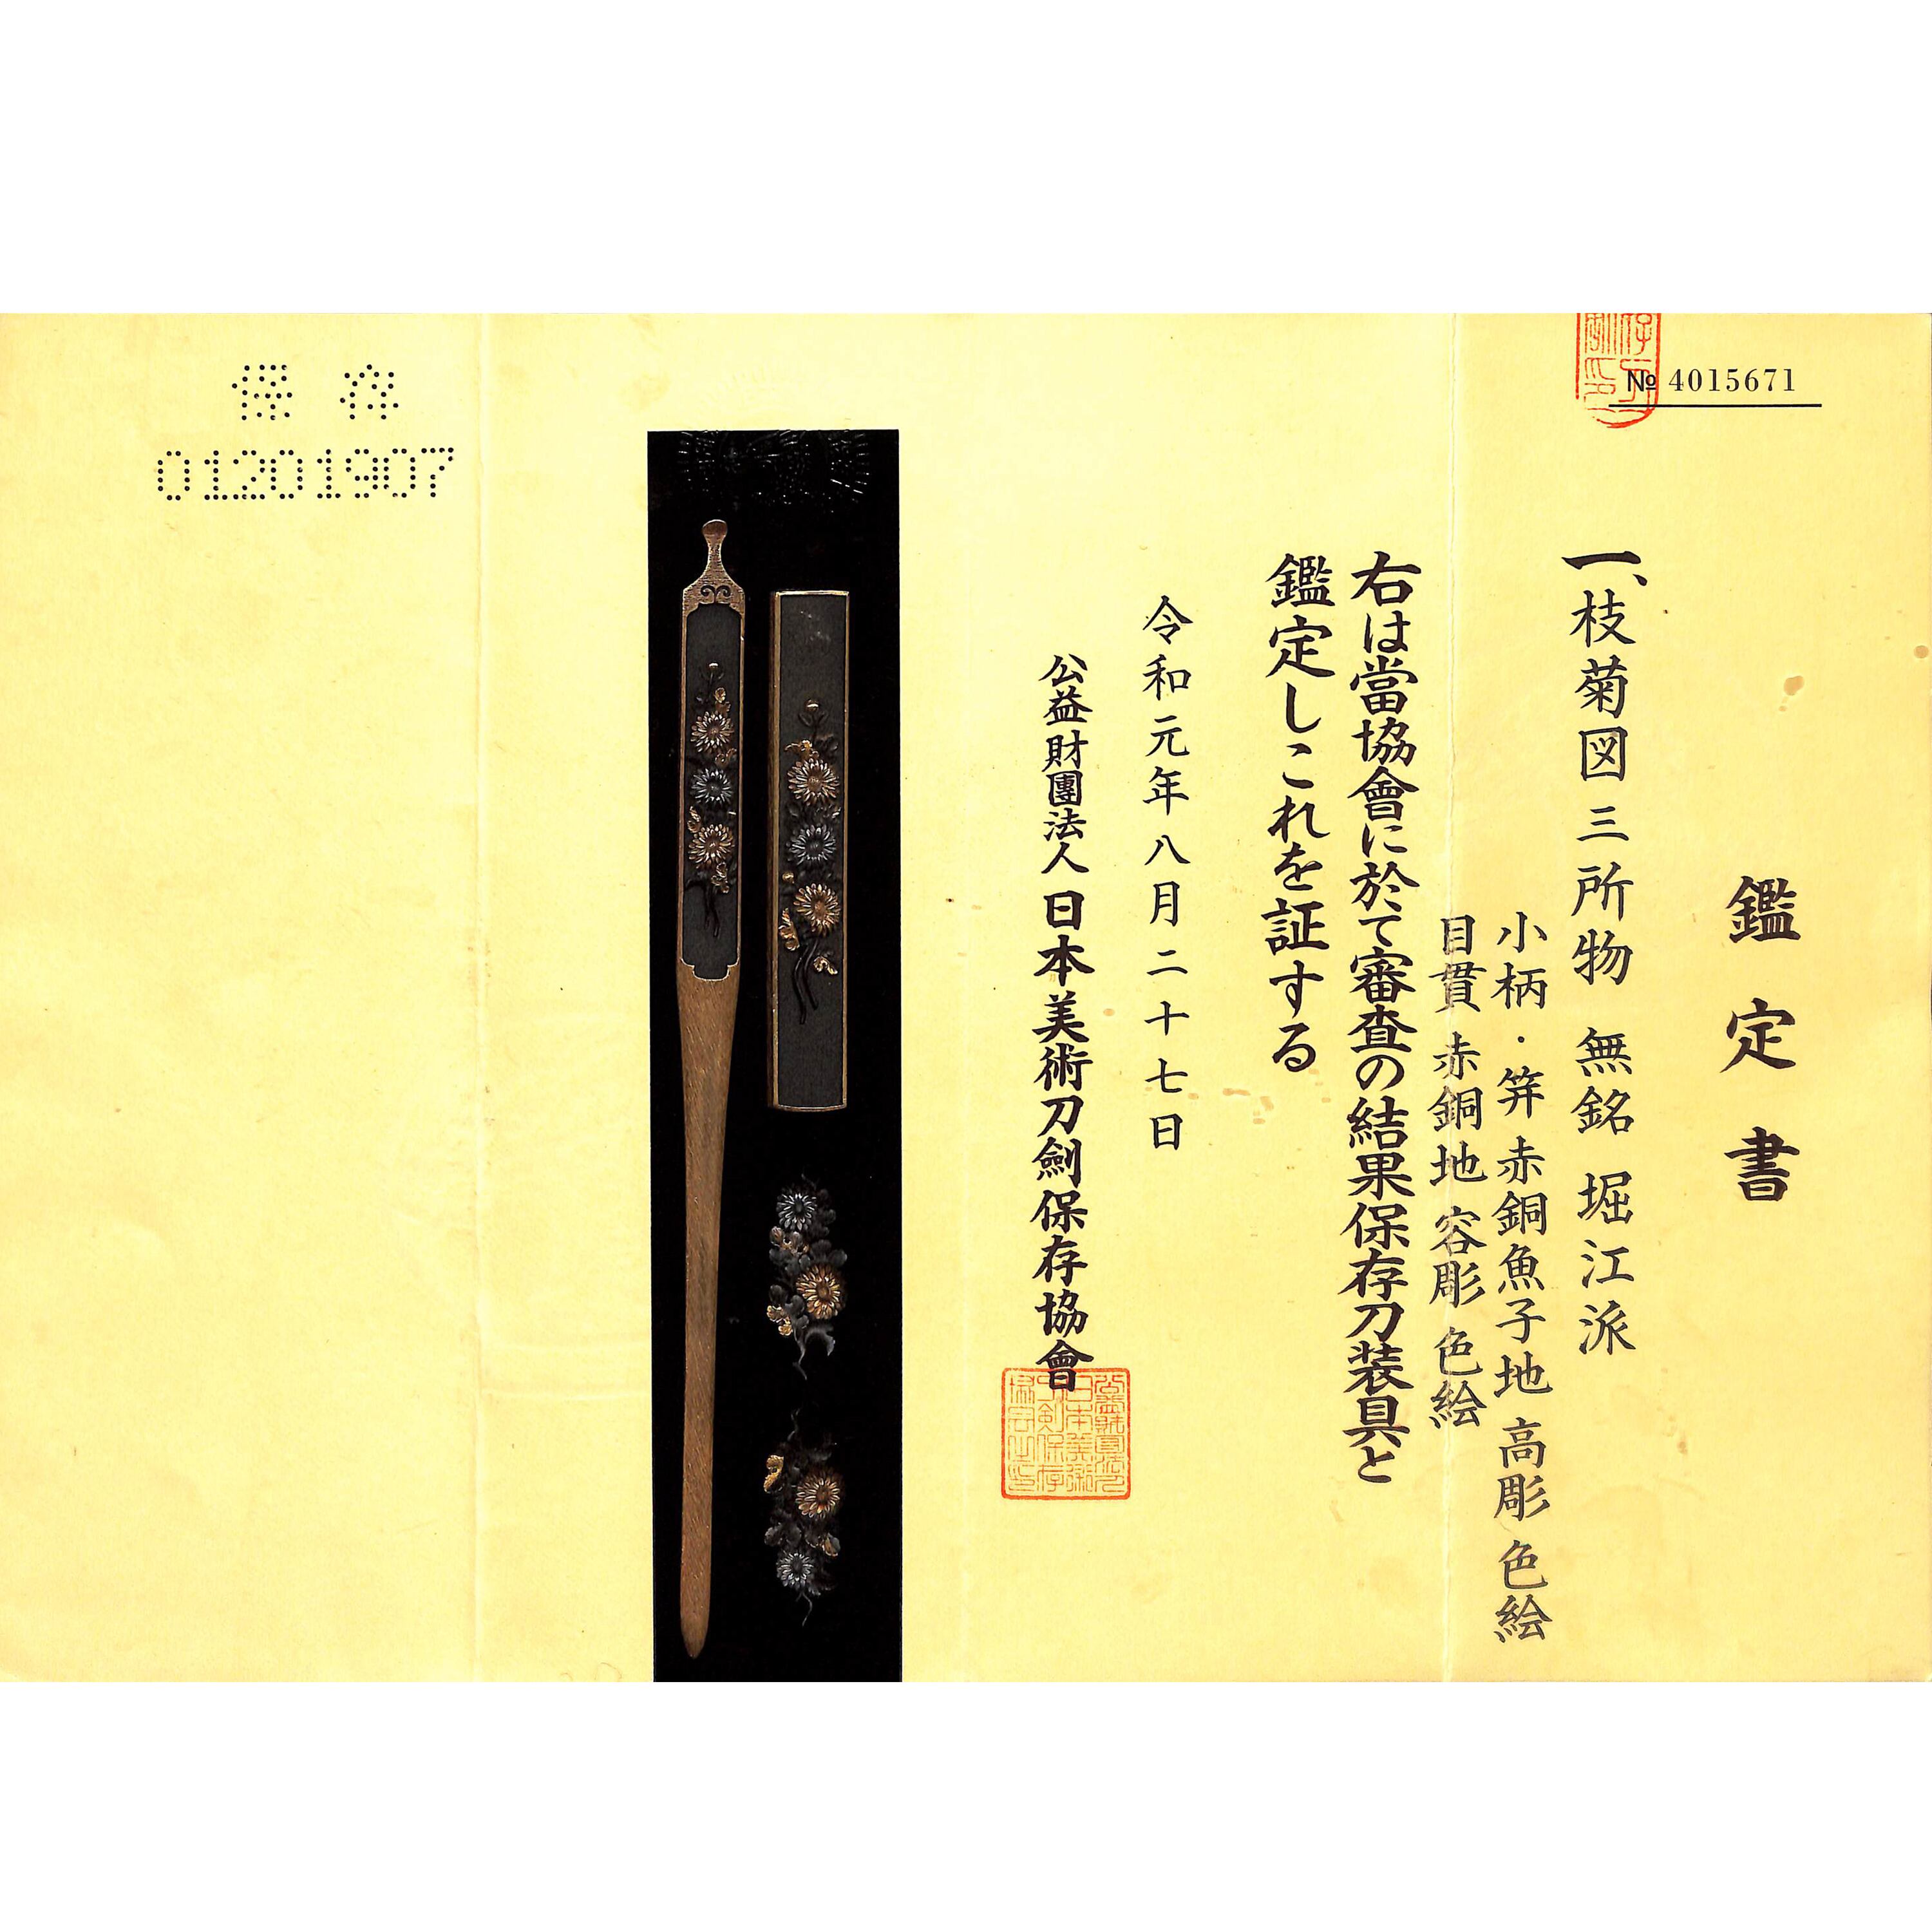 № 4015671
鑑定書
一、枝菊図三所物 無銘 堀江派
小柄・笄 赤銅魚子地 高彫 色絵
目貫 赤銅地 容彫 色絵
右は當協會に於て審査の結果保存刀装具と
鑑定しこれを証する
令和元年八月二十七日
公益財團法人 日本美術刀劍保存協會
保存
01201907